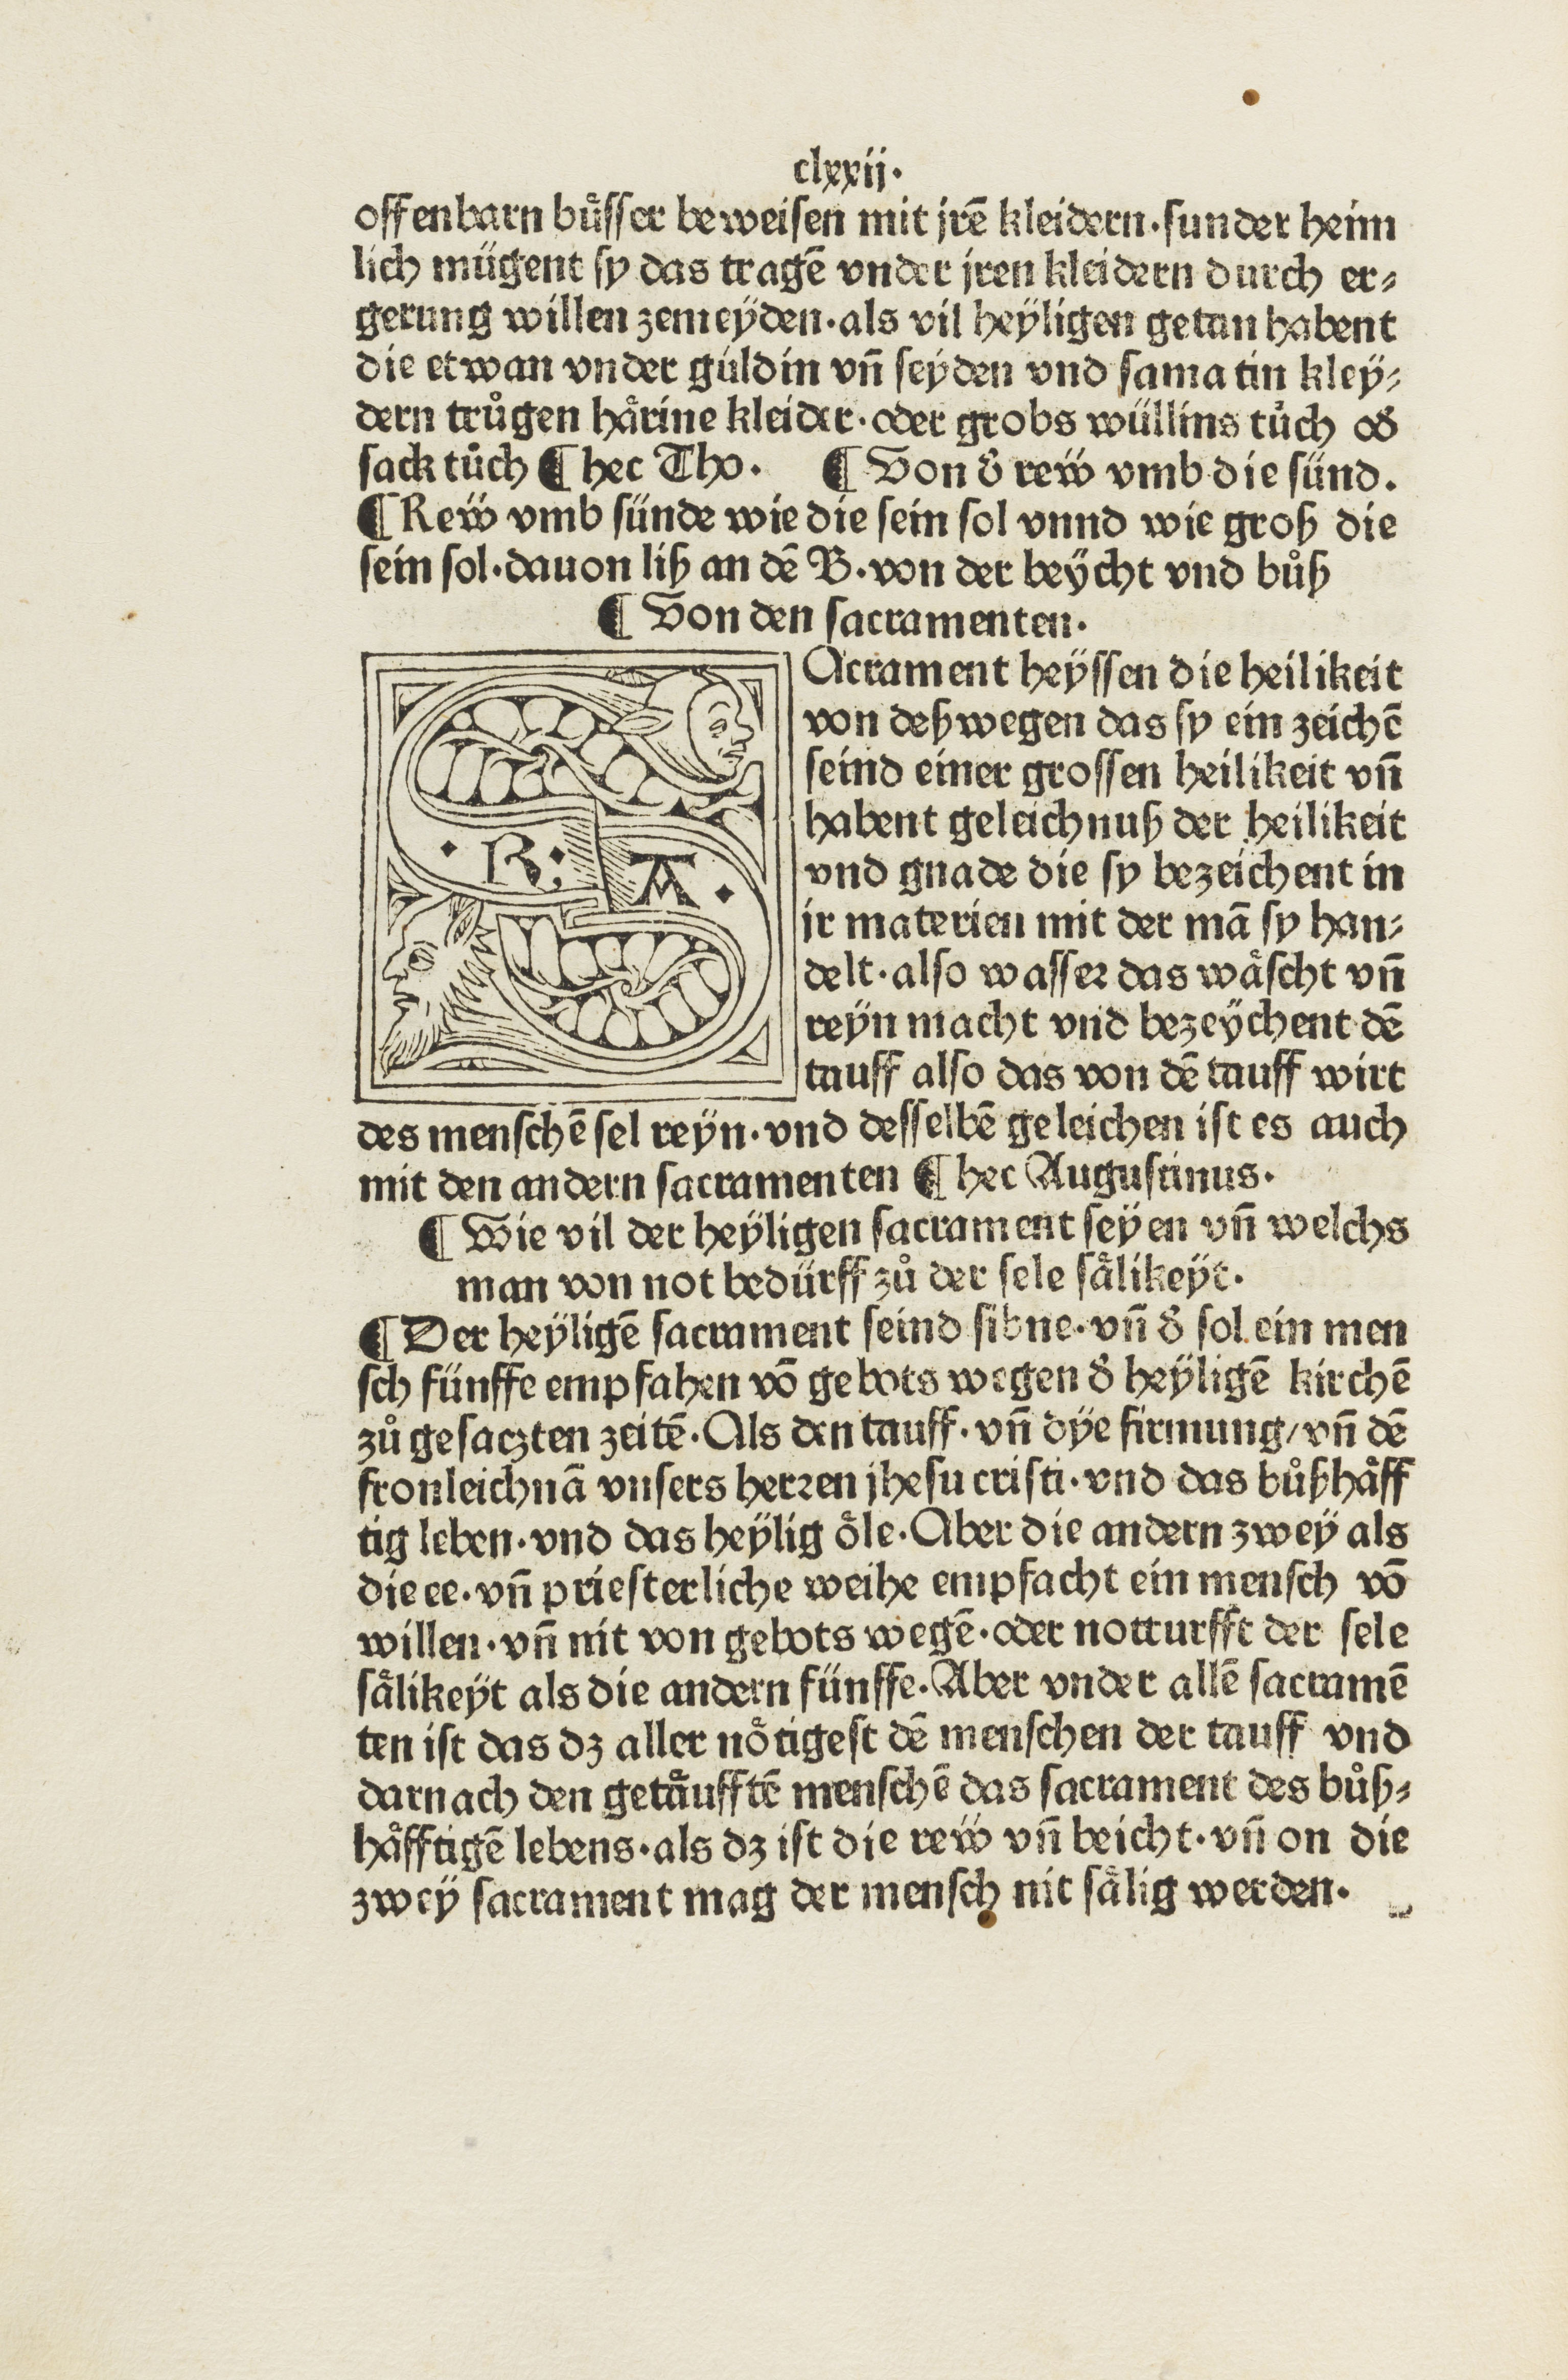 clxxii·
offenbarn buͤsser beweisen mit jrē kleidern·sunder heim
lich mügent sy das tragē vnder jren kleidern durch er⸗
gerung willen zemeÿden·als vil heÿligen getan habent
die etwan vnder guldin vn̄ seÿden vnd samatin kleÿ⸗
dern truͦgen haͤrine kleider·oder grobs wüllins tuͦch oď
sack tuͦch ¶ hec Tho. ¶ Von ď reẅ vmb die sünd.
¶ Reẅ vmb sünde wie die sein sol vnnd wie groß die
sein sol·dauon liß an dē B·von der beÿcht vnd buͦß
¶ Von den sacramenten·
S
·R:A·
Acrament heÿssen die heilikeit
von deßwegen das sy ein zeichē
seind einer grossen heilikeit vn̄
habent geleichnuß der heilikeit
vnd gnade die sy bezeichent in
ir materien mit der mā sy han⸗
delt·also wasser das waͤscht vn̄
reÿn macht vnd bezeÿchent dē
tauff also das von dē tauff wirt
des menschē sel reÿn·vnd desselbē geleichen ist es auch
mit den andern sacramenten ¶ hec Augustinus·
¶ Wie vil der heÿligen sacrament seÿen vn̄ welchs
man von not bedürff zuͦ der sele saͤlikeÿt·
¶ Der heÿligē sacrament seind sibne·vn̄ ď sol ein men
sch fünffe empfahen vō gebots wegen ď heÿligē kirchē
zuͦ gesaczten zeitē·Als den tauff·vn̄ dÿe firmung/vn̄ dē
fronleichnā vnsers herꝛen jhesu cristi·vnd das buͦßhaͤff
tig leben·vnd das heÿlig oͤle·Aber die andern zweÿ als
die ee·vn̄ priesterliche weihe empfacht ein mensch vō
willen·vn̄ nit von gebots wegē·oder notturfft der sele
saͤlikeÿt als die andern fünffe·Aber vnder allē sacramē
ten ist das dz aller noͤtigest dē menschen der tauff vnd
darnach den getaͤufftē menschē das sacrament des buͦß⸗
haͤfftigē lebens·als dz ist die reẅ vn̄ beicht·vn̄ on die
zweÿ sacrament mag der mensch nit saͤlig werden·